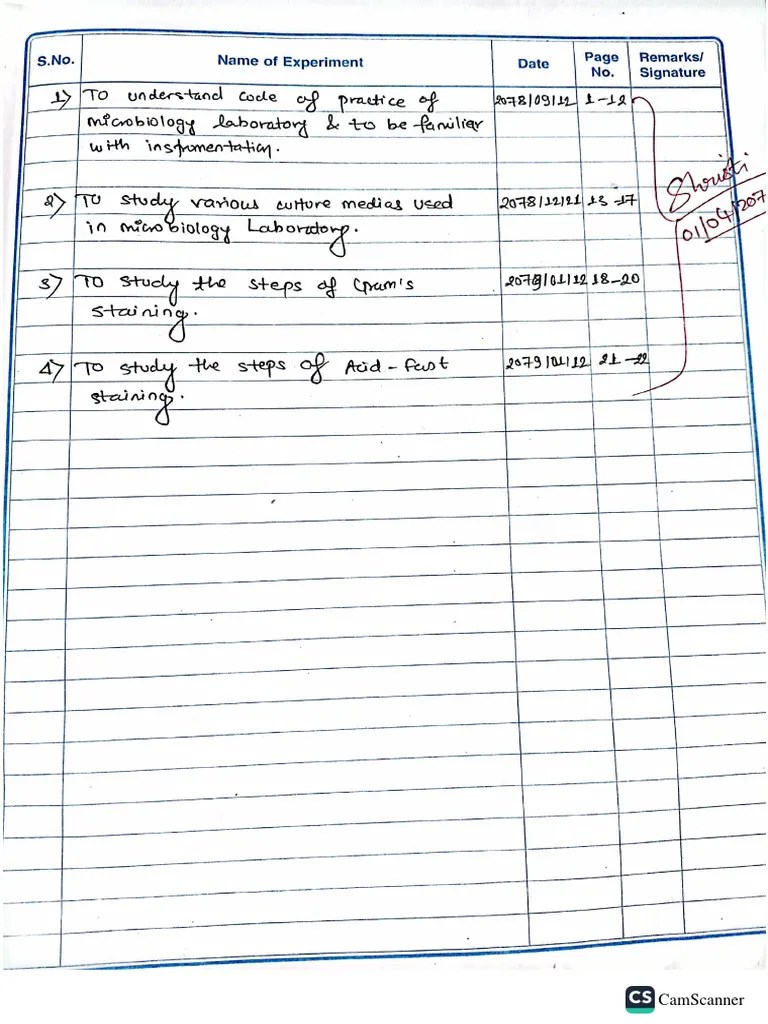 S.No. Name of Experiment Date Page No. Remarks/ Signature
1) To understand code of practice of 2078/09/12 1-12
microbiology laboratory & to be familier
with instrumentation.
2) To study various culture medias used 2078/12/21 13-17
in microbiology Laboratory.
Shristi
01/04/207
3) To study the steps of Gram's 2079/01/12 18-20
staining.
4) To study the steps of Acid-fast 2079/01/12 21-22
staining.
CS CamScanner